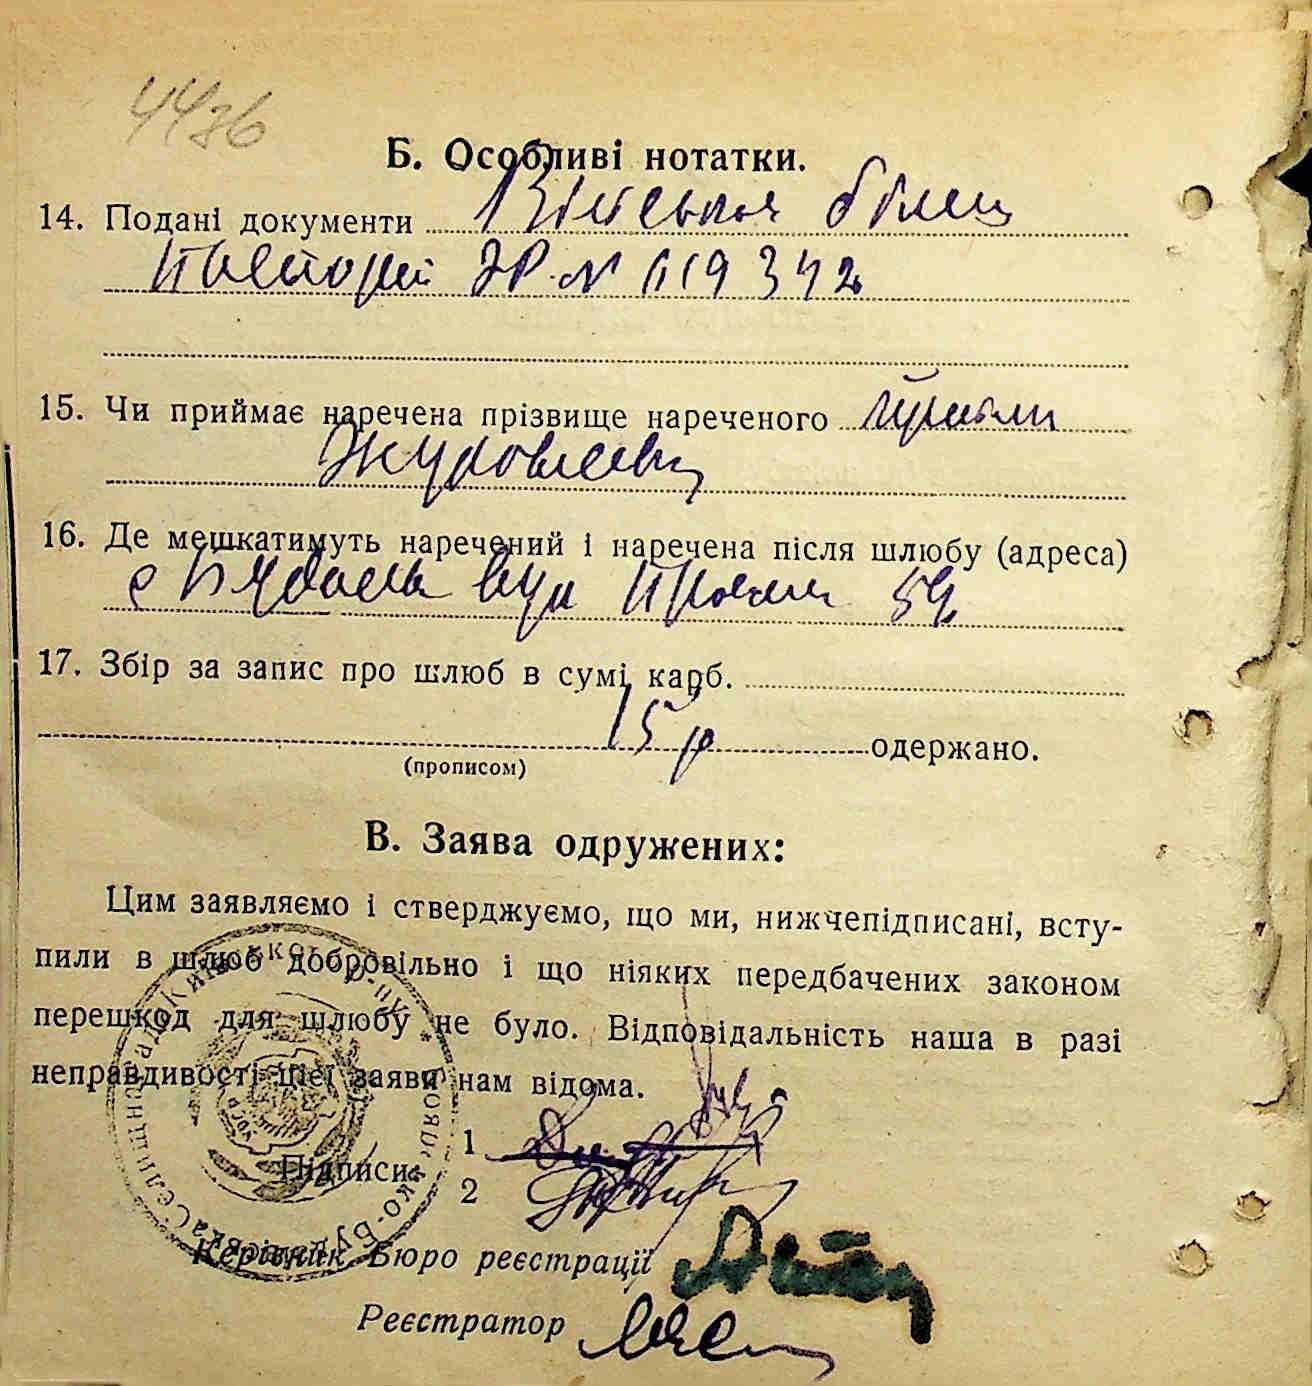 4436
Б. Особливі нотатки.
14. Подані документи Військов білет
Паспорт ЭР № 619342
15. Чи приймає наречена прізвище нареченого приняли
16. Де мешкатимуть наречений і наречена після шлюбу (адреса)
с Будаєвка вул 54
17. Збір за запис про шлюб в сумі карб.
15 р одержано.
(прописом)
В. Заява одружених:
Цим заявляємо і стверджуємо, що ми, нижчепідписані, всту-
пили в шлюб добровільно і що ніяких передбачених законом
перешкод для шлюбу не було. Відповідальність наша в разі
неправдивості цієї заяви нам відома.
1
Підписи:
2
Керівник Бюро реєстрації
Реєстратор